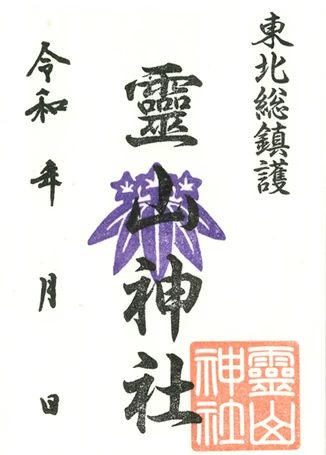 東北総鎮護
靈山神社
令和 年 月 日
靈山
神社